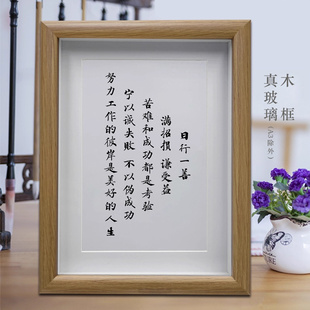 日行一善
满招损 谦受益
苦难和成功都是考验
宁以诚失败 不以伪成功
努力工作的彼岸是美好的人生
木框
真玻璃
(A3除外)